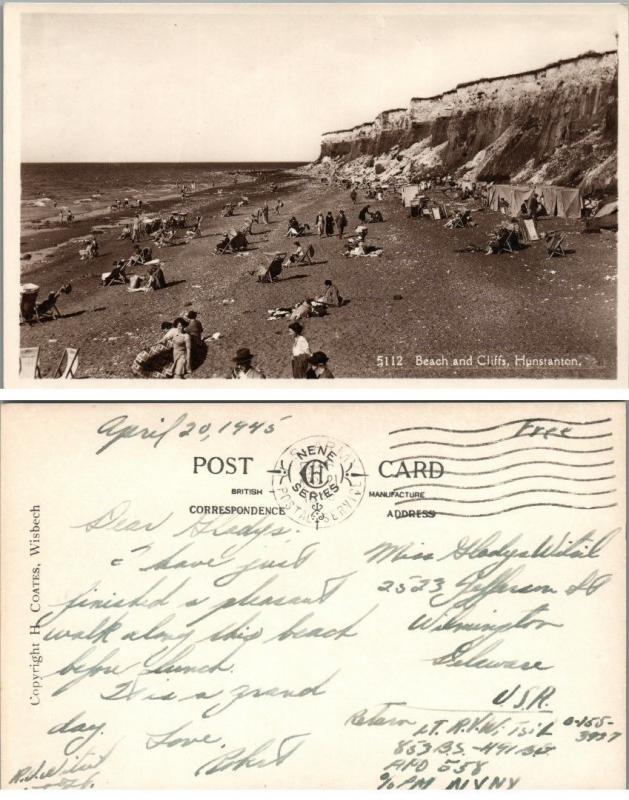 5112 Beach and Cliffs, Hunstanton.
April 20, 1945
Free
POST CARD
NENE
CH
SERIES
U.S. ARMY
POSTAL SERVICE
BRITISH MANUFACTURE
CORRESPONDENCE ADDRESS
Copyright H. COATES, Wisbech
Dear Gladys:
I have just
finished a pleasant
walk along this beach
before lunch.
It is a grand
day.
Love,
Robert
Miss Gladys Witsil
2523 Jefferson St
Wilmington
Delaware
USA.
Return
LT. R.W. Witsil
853 B.S. - 491 B.G.
APO 558
% PM NYNY